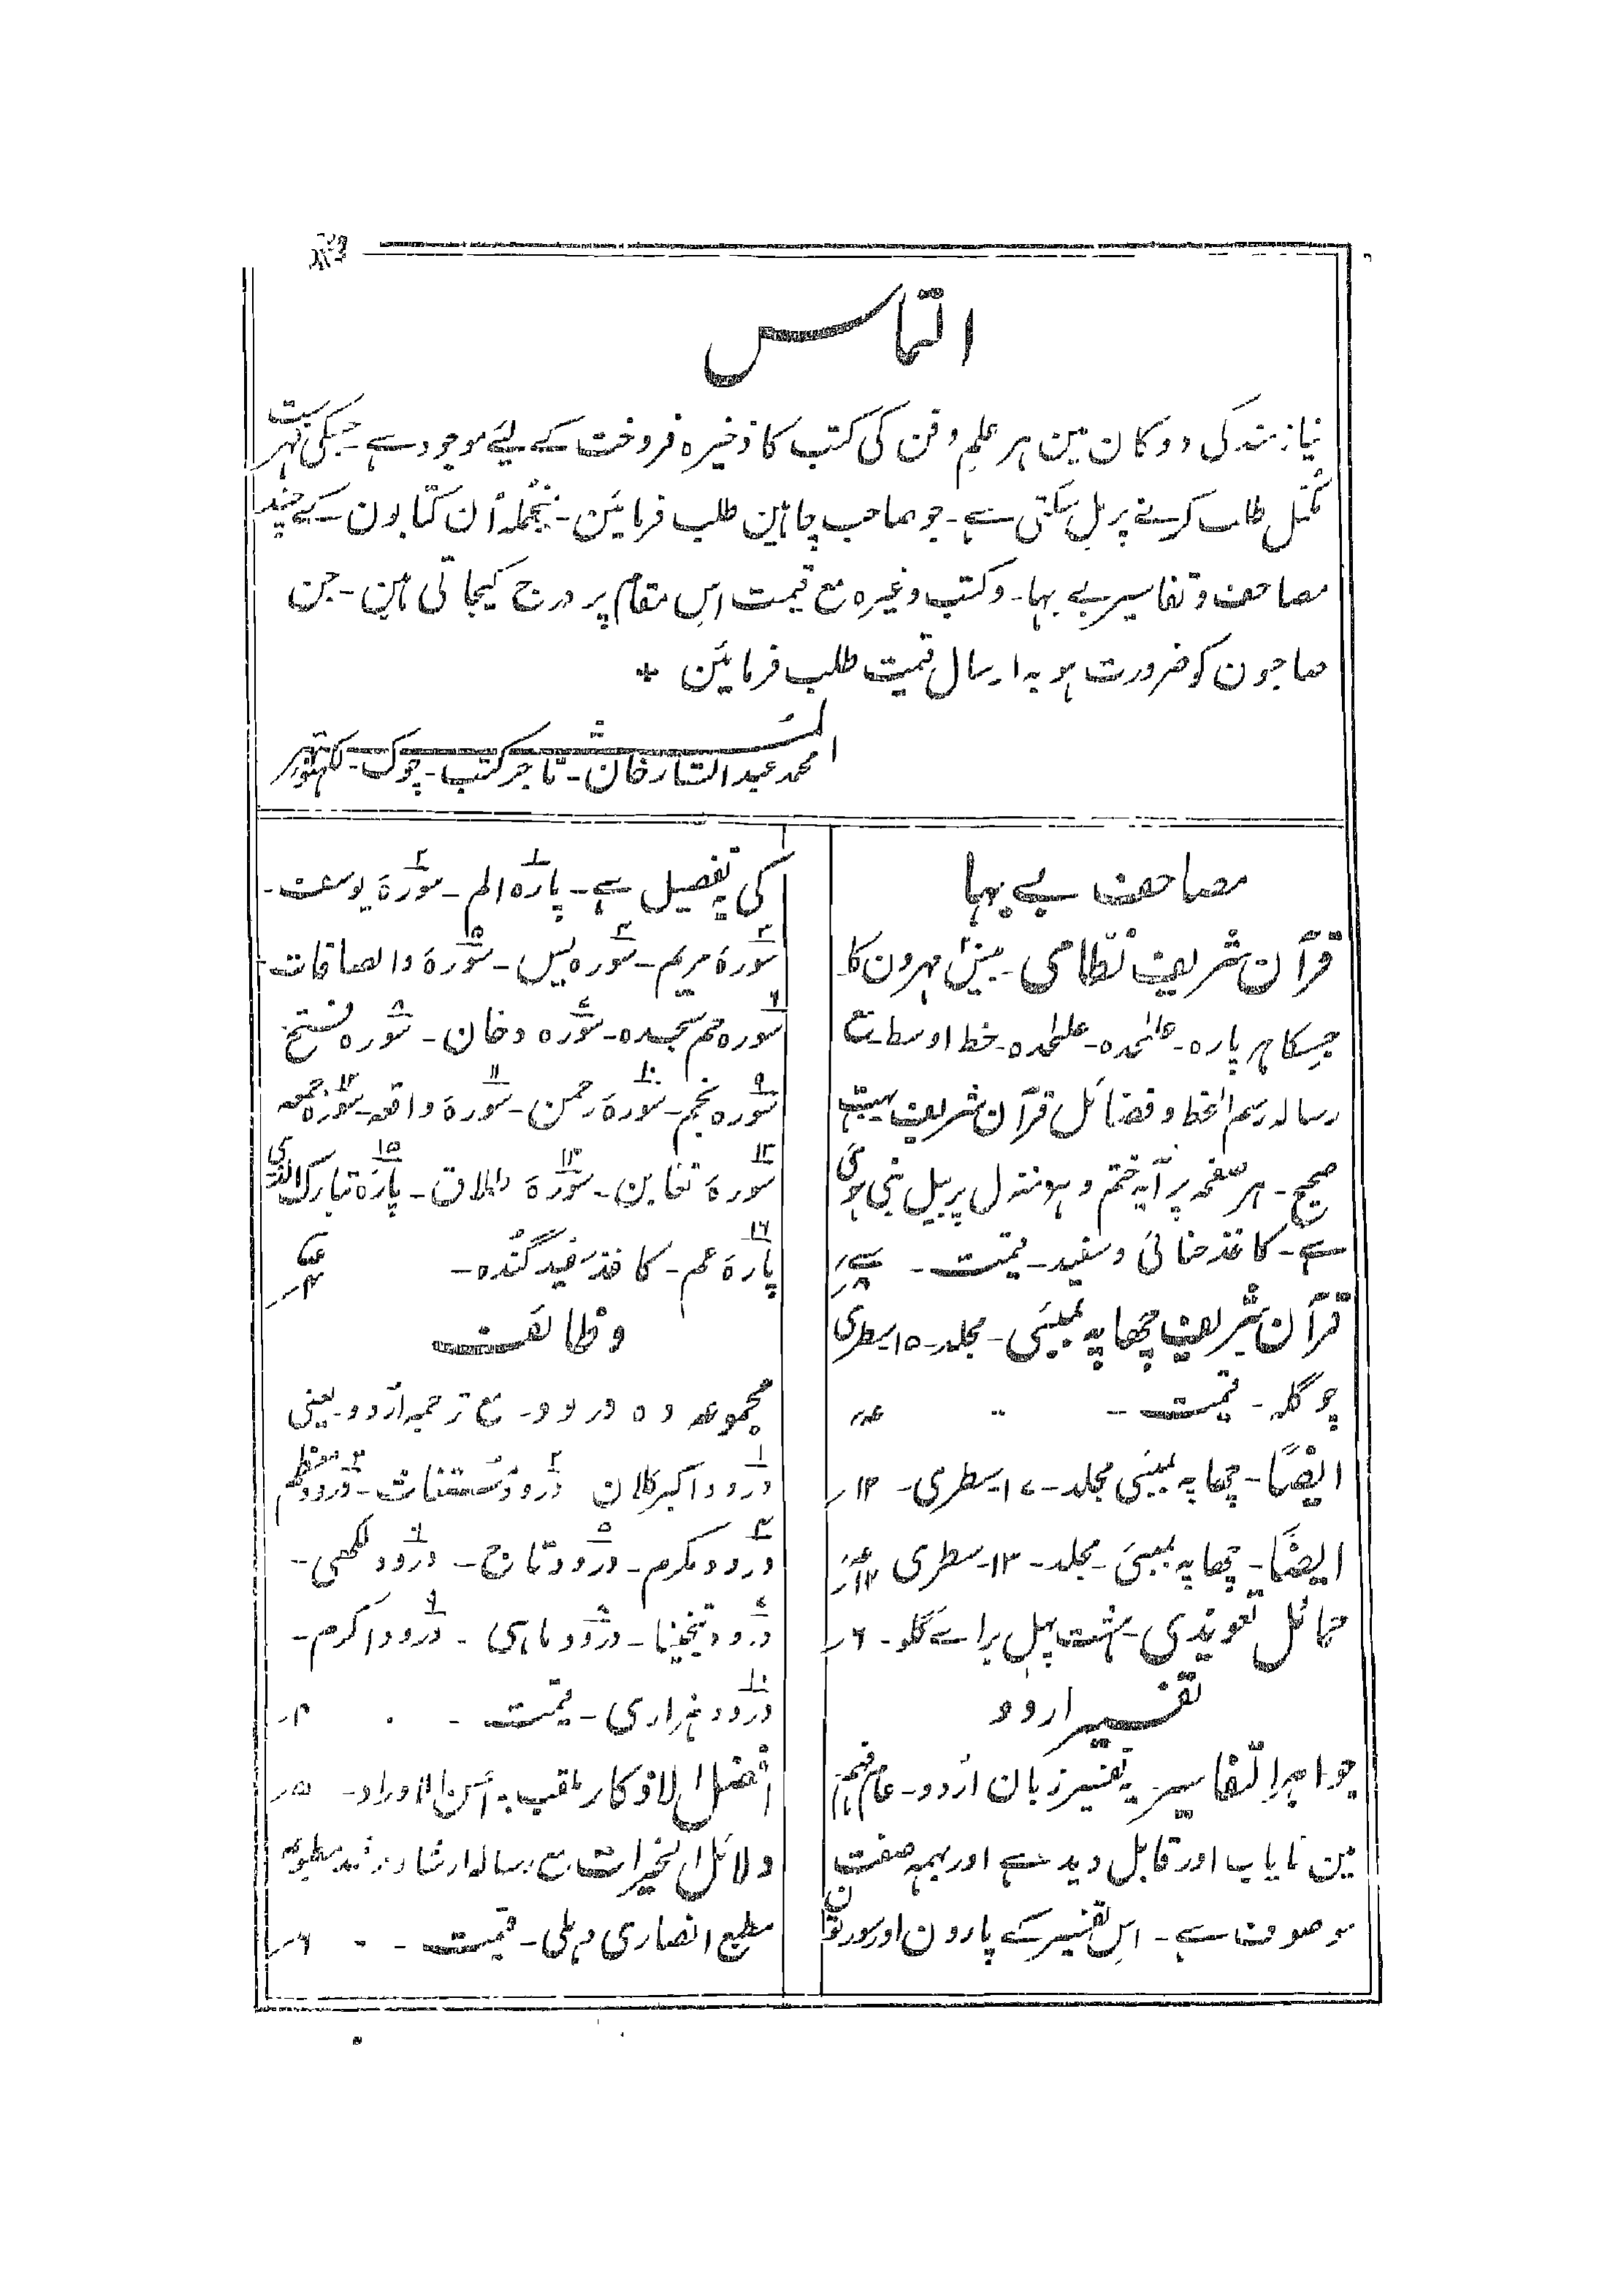 التماس
نیازمند کی دوکان مین ہر علم و فن کی کتب کا ذخیرہ فروخت کے لیے موجود ہے۔ جسکی فہرست
مکمل طلب کرنے پر مل سکتی ہے۔ جو صاحب چاہین طلب فرمائین۔ منجملہ اُن کتابون کے چند
مصاحف و تفاسیر بے بہا۔ و کتب وغیرہ مع قیمت اس مقام پر درج کیجاتی ہین۔ جن
صاحبون کو ضرورت ہو بہ ارسال قیمت طلب فرمائین *
المشتہر
محمد عبد الستار خان۔ تاجر کتب۔ چوک۔ لکھنؤ
مصاحف بے بہا
قرآن شریف نظامی۔ مہرون کا
جسکا ہر پارہ۔ علٰحدہ۔ علٰحدہ۔ خط اوسط۔ مع
رسالہ رسم الخط و فضائل قرآن شریف بہت
صحیح۔ ہر صفحہ پر آیہ ختم و ہر منزل پر بیل بنی ہوئی
ہے۔ کاغذ حنائی و سفید۔ قیمت۔
قرآن شریف چھاپہ بمبئی۔ مجلد۔ ۱۵ سطری
چوگلہ۔ قیمت۔
ایضًا۔ چھاپہ بمبئی مجلد۔ ۱۷ سطری۔ ۱۲؍
ایضًا۔ چھاپہ بمبئی۔ مجلد۔ ۱۳ سطری
حمائل تعویذی۔ ہشت پہل برائے گلو۔ ۶؍
تفسیر اردو
جواہر التفاسیر۔ یہ تفسیر زبان اُردو۔ عام فہم
مین نایاب اور قابل دید ہے اور ہمہ صفت
موصوف ہے۔ اس تفسیر کے پارون اور سورتون
کی یہ تفصیل ہے۔ پارہ الم۔ سورۃ یوسف۔
سورۃ مریم۔ سورہ یٰس۔ سورۃ والصافات
سورہ حم سجدہ۔ سورہ دخان۔ سورہ فتح
سورہ نجم۔ سورۃ رحمن۔ سورۃ واقعہ۔ سورہ جمعہ
سورۃ تغابن۔ سورۃ طلاق۔ پارۂ تبارک الذی
پارۂ عم۔ کاغذ سفید گندہ۔
وظائف
مجموعہ دہ درود۔ مع ترجمہ اُردو۔ یعنی
درود اکبر کلان درود مستغاث۔ درود معظم
درود مکرم۔ درود تاج۔ درود لکھی۔
درود تنجینا۔ درود ماہی۔ درود اکرم۔
درود ہزاری۔ قیمت۔
افضل الاذکار ملقب بہ احسن الاوراد۔ ۵؍
دلائل الخیرات مع رسالہ ارشاد مرشد مطبوعہ
مطبع انصاری دہلی۔ قیمت۔ ۶؍